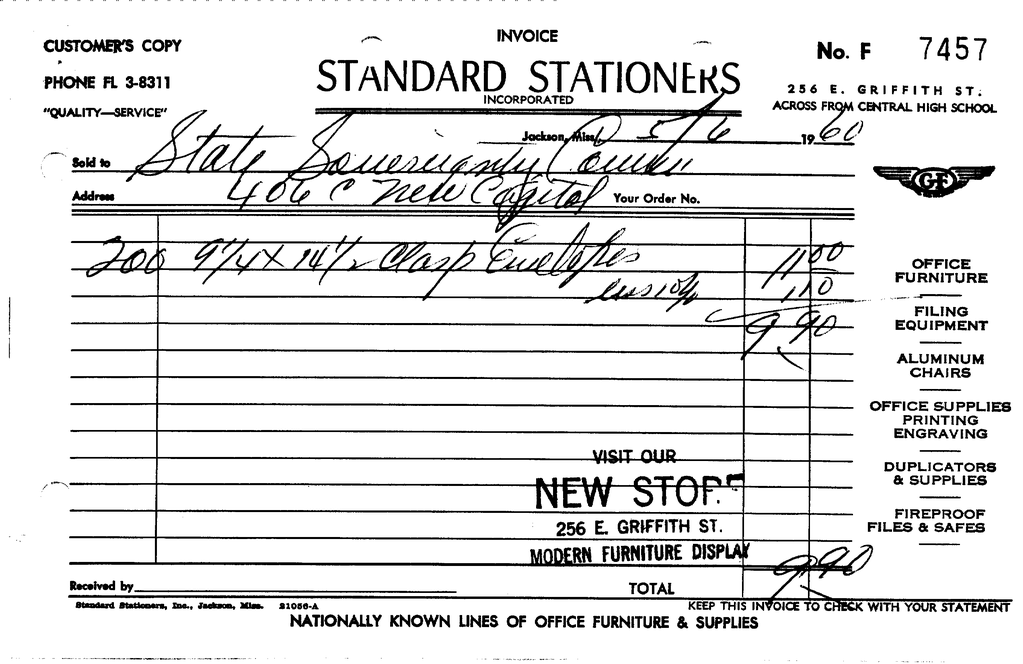 INVOICE
CUSTOMER'S COPY
No. F 7457
PHONE FL 3-8311
STANDARD STATIONERS
INCORPORATED
256 E. GRIFFITH ST.
"QUALITY—SERVICE"
ACROSS FROM CENTRAL HIGH SCHOOL
Jackson, Miss. 5/6 1960
Sold to State Sovereignty Comm
Address 406 C New Capitol Your Order No.
GF
200 9 1/4 X 14 1/2 Clasp Envelopes 11.00
less 10% 1.10
9.90
OFFICE
FURNITURE
FILING
EQUIPMENT
ALUMINUM
CHAIRS
OFFICE SUPPLIES
PRINTING
ENGRAVING
DUPLICATORS
& SUPPLIES
FIREPROOF
FILES & SAFES
VISIT OUR
NEW STORE
256 E. GRIFFITH ST.
MODERN FURNITURE DISPLAY
Received by TOTAL 9.90
Standard Stationers, Inc., Jackson, Miss. 21056-A
KEEP THIS INVOICE TO CHECK WITH YOUR STATEMENT
NATIONALLY KNOWN LINES OF OFFICE FURNITURE & SUPPLIES